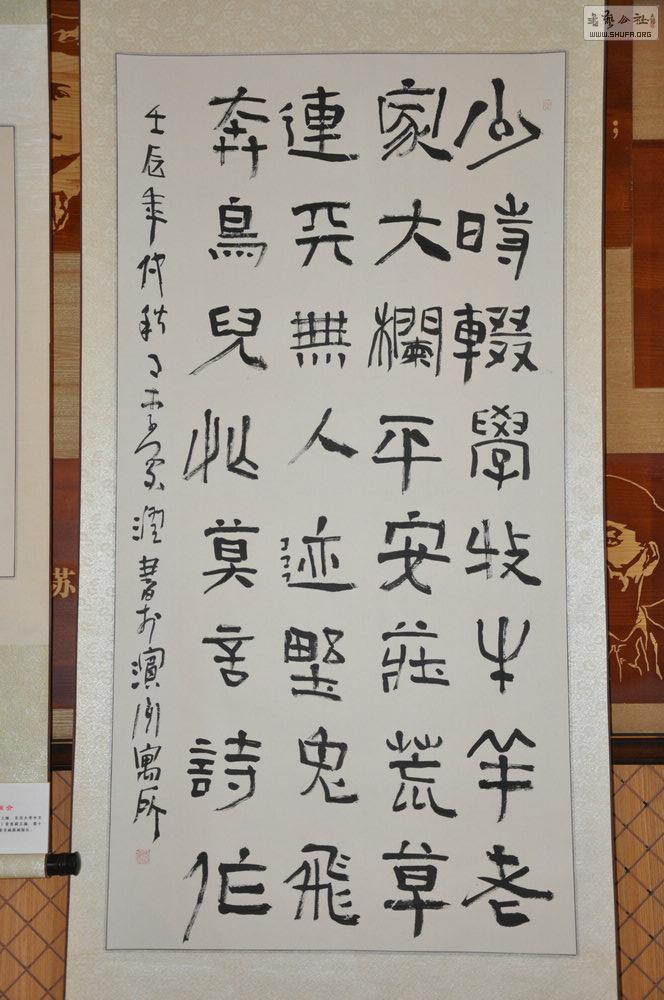 書藝公社
WWW.SHUFA.ORG
少時輟學牧牛羊老
家大欄平安莊荒草
連天無人迹野兔飛
奔鳥兒忙莫言詩作
壬辰年仲秋月李書於濱州寓所
苏